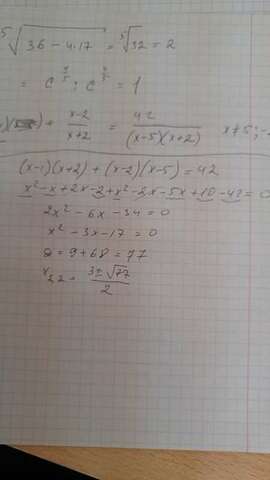 ⁵√(36 - 4·17) = ⁵√32 = 2
= c : c = 1
+ (x-2)/(x+2) = 42/((x-5)(x+2)) x≠5; -
(x-1)(x+2) + (x-2)(x-5) = 42
x² - x + 2x - 2 + x² - 2x - 5x + 10 - 42 = 0
2x² - 6x - 34 = 0
x² - 3x - 17 = 0
D = 9 + 68 = 77
x₁,₂ = (3 ± √77)/2